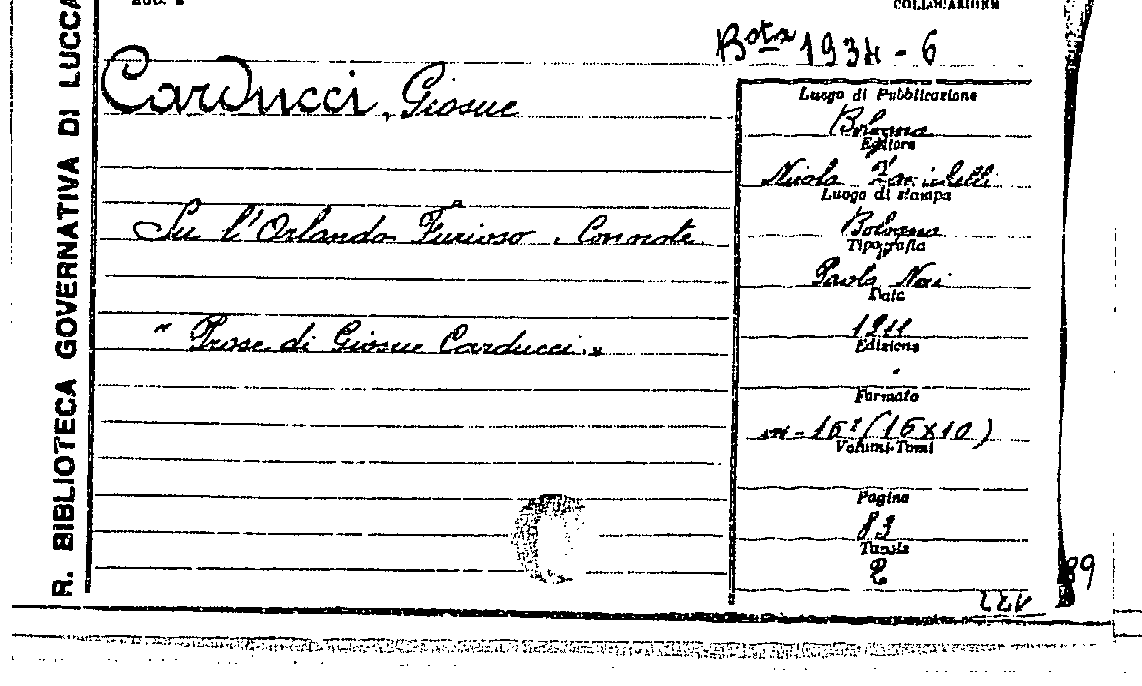 COLLOCAZIONE
R. BIBLIOTECA GOVERNATIVA DI LUCCA
1934 - 6
Carducci, Giosue
Su l'Orlando Furioso. Con note
"Prose di Giosue Carducci."
Luogo di Pubblicazione
Bologna
Editore
Nicola Zanichelli
Luogo di stampa
Bologna
Tipografia
Paolo Neri
Data
1911
Edizione
Formato
in-16° (16x10)
Volumi-Tomi
Pagine
83
Tavole